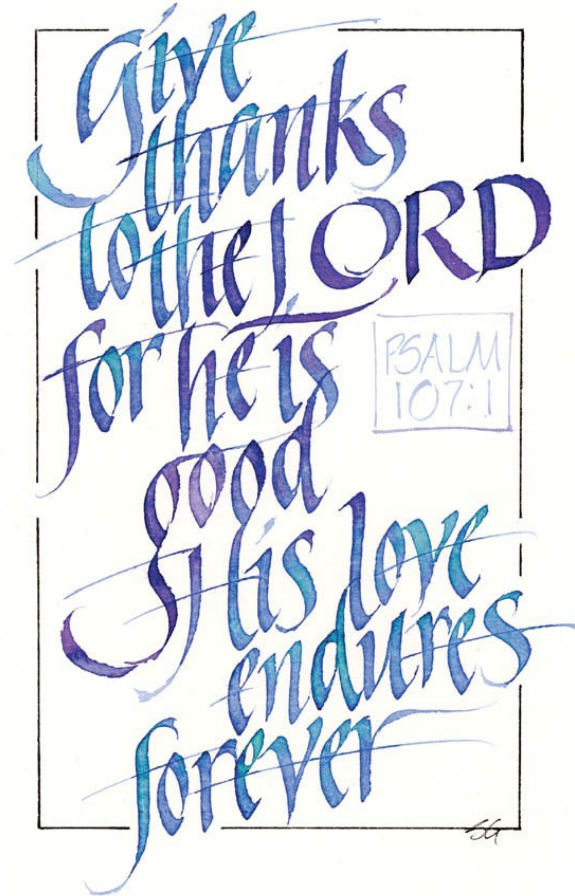 Give
thanks
to the LORD
for he is
PSALM
107:1
good
His love
endures
forever
SG